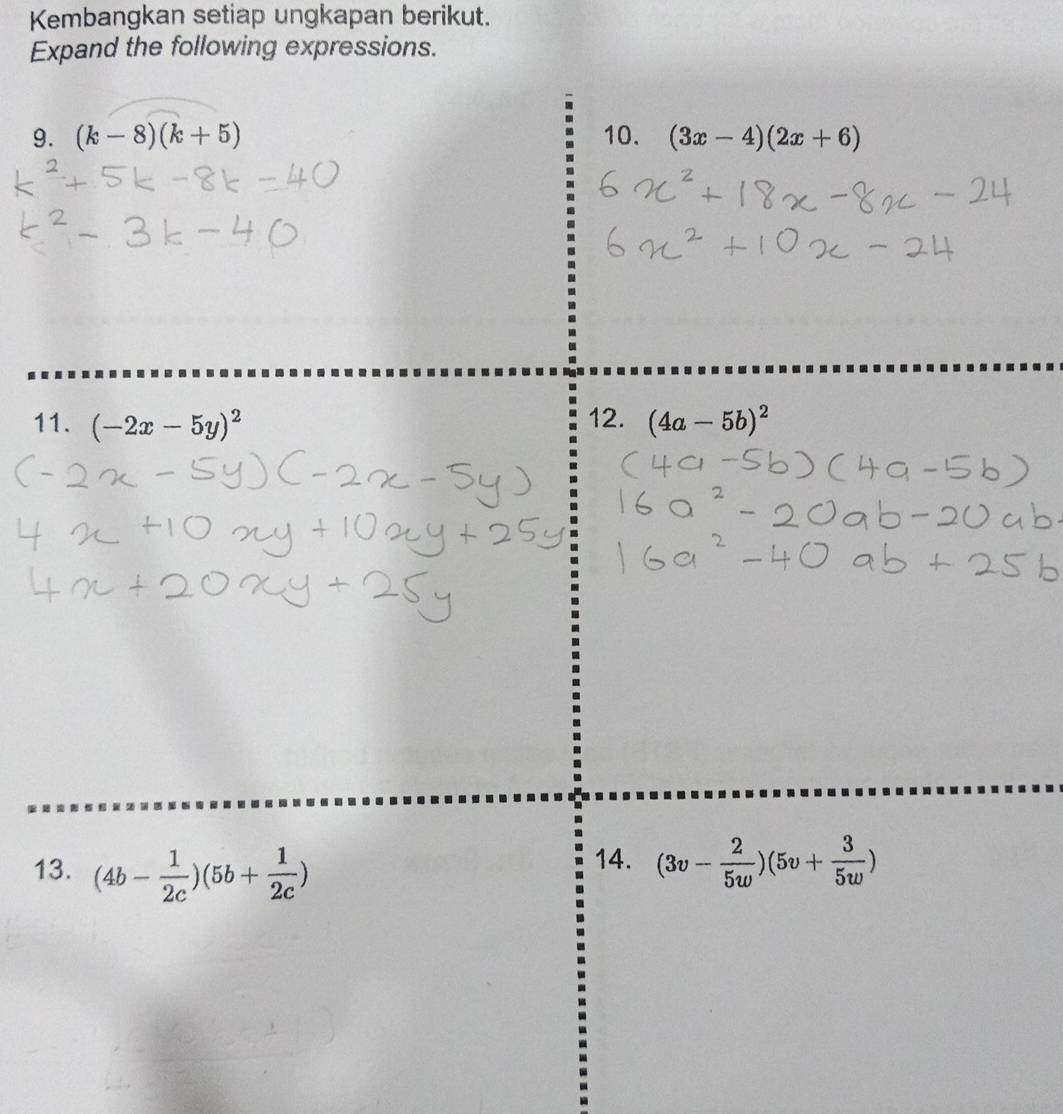 Kembangkan setiap ungkapan berikut.
Expand the following expressions.
9. (k − 8)(k + 5)
k² + 5k − 8k − 40
k² − 3k − 40
10. (3x − 4)(2x + 6)
6x² + 18x − 8x − 24
6x² + 10x − 24
11. (−2x − 5y)²
(−2x − 5y)(−2x − 5y)
4x + 10xy + 10xy + 25y
4x + 20xy + 25y
12. (4a − 5b)²
(4a − 5b)(4a − 5b)
16a² − 20ab − 20ab
16a² − 40ab + 25b
13. (4b − 1/2c)(5b + 1/2c)
14. (3v − 2/5w)(5v + 3/5w)